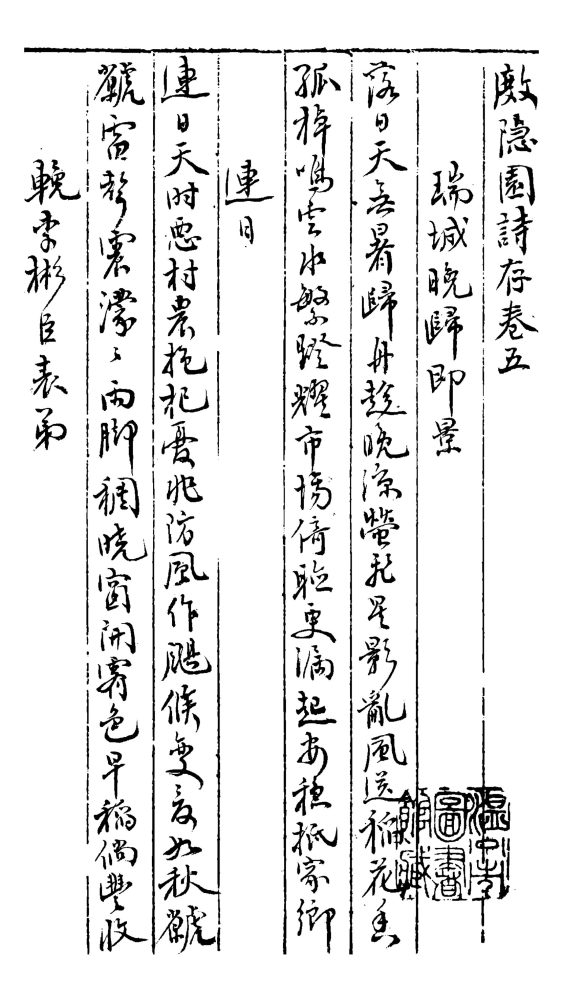 廒隐園詩存卷五
瑞城晚歸即景
落日天無暑歸舟趁晚涼螢飛星影亂風送稻花香
孤棹鳴雲水繁燈耀市場倚聆更漏起安穩抵家鄉
連日
連日天时惡村農抱杞憂非防風作颶候变夏如秋虩
虩雷聲震濛〻雨脚稠晓窗開霽色早稻倘豐收
輓李彬臣表弟
圖書